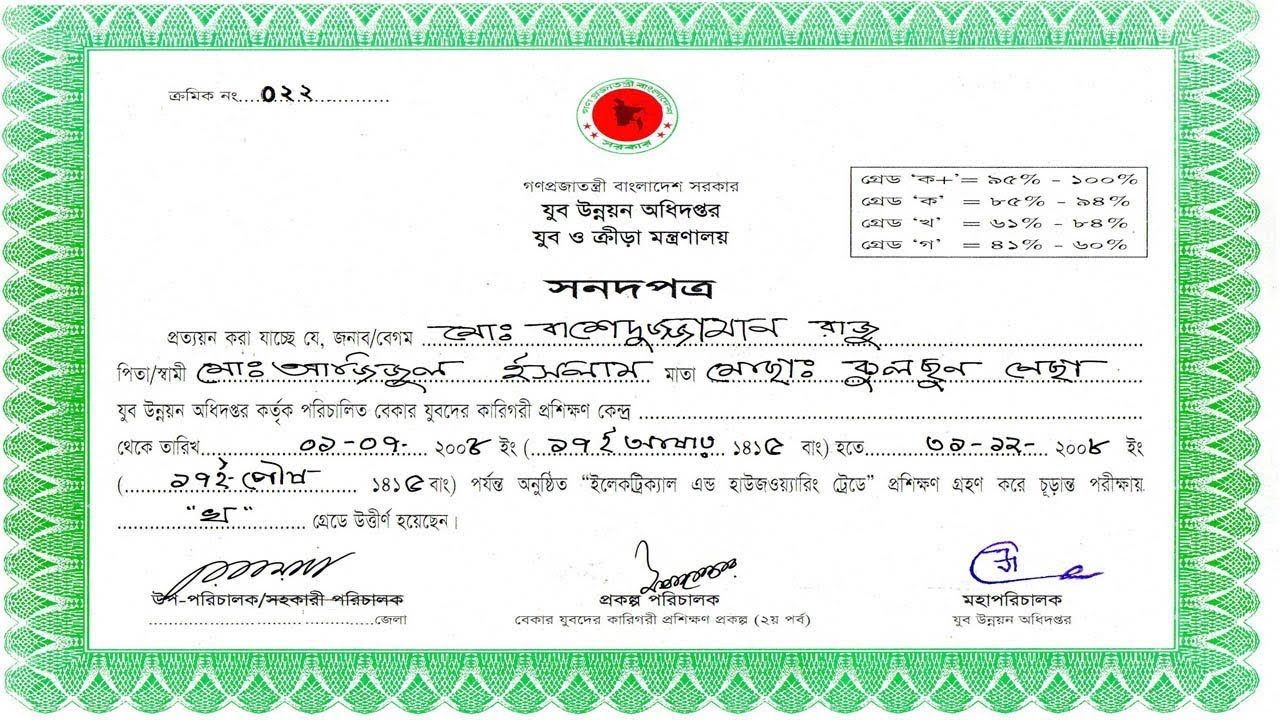 ক্রমিক নং....০২২................
গণপ্রজাতন্ত্রী বাংলাদেশ
সরকার
গণপ্রজাতন্ত্রী বাংলাদেশ সরকার
যুব উন্নয়ন অধিদপ্তর
যুব ও ক্রীড়া মন্ত্রণালয়
গ্রেড ‘ক+’= ৯৫% - ১০০%
গ্রেড ‘ক’ = ৮৫% - ৯৪%
গ্রেড ‘খ’ = ৬১% - ৮৪%
গ্রেড ‘গ’ = ৪১% - ৬০%
সনদপত্র
প্রত্যয়ন করা যাচ্ছে যে, জনাব/বেগম মোঃ রাশেদুজ্জামান রাজু
পিতা/স্বামী মোঃ আজিজুল ইসলাম মাতা মোছাঃ কুলছুন নেছা
যুব উন্নয়ন অধিদপ্তর কর্তৃক পরিচালিত বেকার যুবদের কারিগরী প্রশিক্ষণ কেন্দ্র
থেকে তারিখ ০১-০৭- ২০০৮ ইং (১৭ই আষাঢ় ১৪১৫ বাং) হতে ৩১-১২- ২০০৮ ইং
(১৭ই-পৌষ ১৪১৫ বাং) পর্যন্ত অনুষ্ঠিত “ইলেকট্রিক্যাল এন্ড হাউজওয়্যারিং ট্রেডে” প্রশিক্ষণ গ্রহণ করে চূড়ান্ত পরীক্ষায়
“খ” গ্রেডে উত্তীর্ণ হয়েছেন।
উপ-পরিচালক/সহকারী পরিচালক
জেলা
প্রকল্প পরিচালক
বেকার যুবদের কারিগরী প্রশিক্ষণ প্রকল্প (২য় পর্ব)
মহাপরিচালক
যুব উন্নয়ন অধিদপ্তর